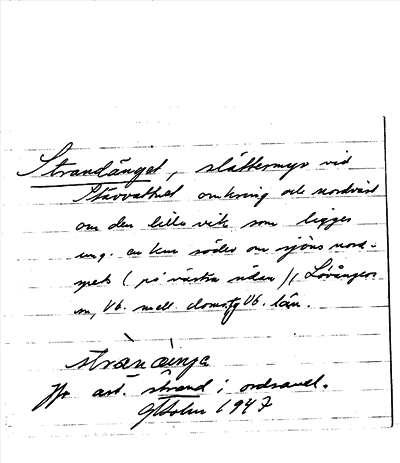 Strandänget, slåttermyr vid
Stavvattnet omkring och nordväst
om den lilla vik som ligger
ung. en km söder om sjöns nord-
spets (på västra sidan), Lövångers
sn, Vb. mell. doms. Vb. län.
stran æinge
Jfr art. strand i ordsaml.
GHolm 1947